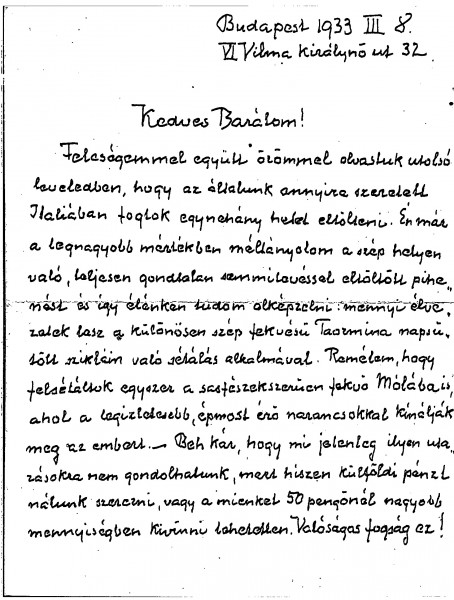 Budapest 1933 III 8.
VI Vilma királynő ut 32
Kedves Barátom!
Feleségemmel együtt örömmel olvastuk utolsó
leveledben, hogy az általunk annyira szeretett
Italiában fogtok egynehány hetet eltölteni. Én már
a legnagyobb mértékben méltányolom a szép helyen
való, teljesen gondtalan semmitevéssel eltöltött pihe„
nést és így élénken tudom elképzelni: mennyi élve„
zetek lesz a különösen szép fekvésű Taormina napsü„
tött szikláin való sétálás alkalmával. Remélem, hogy
felsétáltok egyszer a sasfészekszerüen fekvő Mólába is,
ahol a legizletesebb, épmost érő narancsokkal kínálják
meg az embert. – Beh kár, hogy mi jelenleg ilyen uta„
zásokra nem gondolhatunk, mert hiszen külföldi pénzt
nálunk szerezni, vagy a mienket 50 pengőnél nagyobb
mennyiségben kivinni lehetetlen. Valóságos fogság ez!